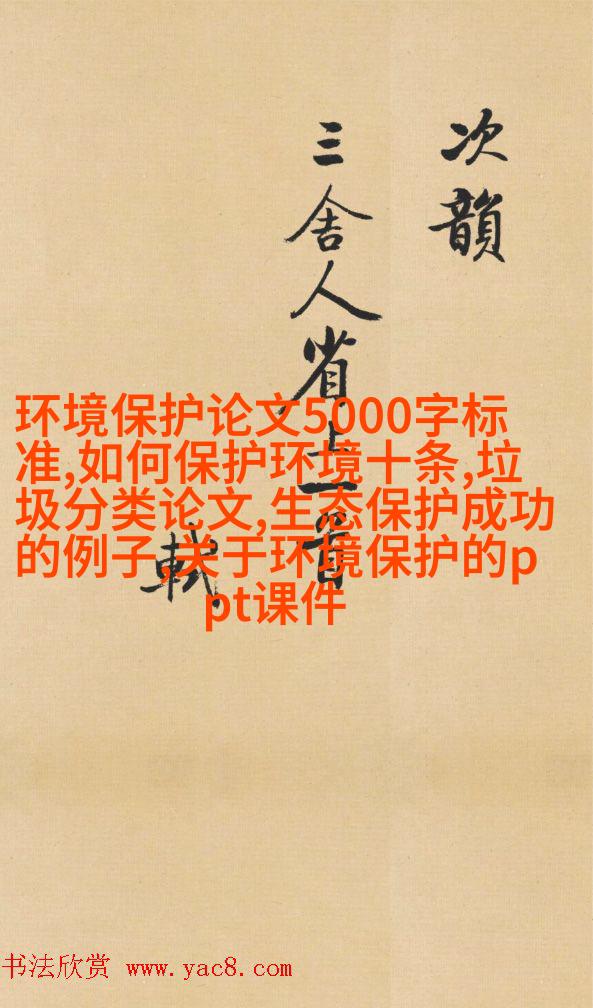 次韻
三舍人省上一首
軾
环境保护论文5000字标
准,如何保护环境十条,垃
圾分类论文,生态保护成功
的例子,关于环境保护的p
pt课件
书法欣赏 www.yac8.com